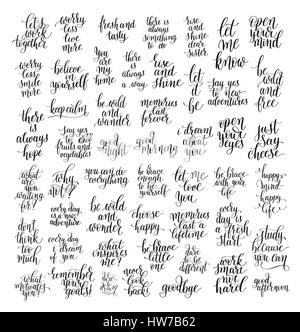 let's
work
together
worry
less
live
more
fresh and
tasty
there is
always
something
to do
rise
and
shine
dear
sister
let
me
know
open
your
mind
worry
less
smile
more
believe
in
yourself
you
are
my
home
there is
always
a way
rise
and
shine
let
it
be
be wild
and
free
there
is
always
hope
keep calm
be wild
and
wander
memories
last
forever
say yes
to new
adventures
say yes
to
fruits and
vegetables
good
night
good
morning
i dream
about
you
open
your
eyes
just
say
cheese
what
are
you
waiting
for?
why
not?
you can do
everything
be brave
enough
to be
yourself
let
me
love
you
be brave
with your
life
happy
mind
happy
life
every day
is a new
adventure
be wild
and
wander
choose
happy
memories
last a
lifetime
every
day is
a fresh
start
study
because
you can
don't
think
too
much
every day
i dream
of you
what
inspires
me?
be brave
little
one
dare
to be
different
work
smart
not
hard
what
motivates
you?
remember
your
goals!
never
look
back!
goodbye
good day!
alamy
Image ID: HW7B62
www.alamy.com